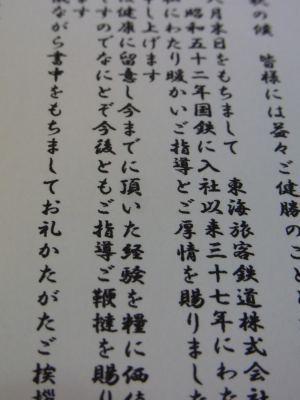 秋の候　皆様には益々ご健勝のこと
月末日をもちまして　東海旅客鉄道株式会社
昭和五十二年国鉄に入社以来三十七年にわた
にわたり暖かいご指導とご厚情を賜りました
し上げます
健康に留意し今までに頂いた経験を糧に価値
すのでなにとぞ今後ともご指導ご鞭撻を賜り
ます
ながら書中をもちましてお礼かたがたご挨拶